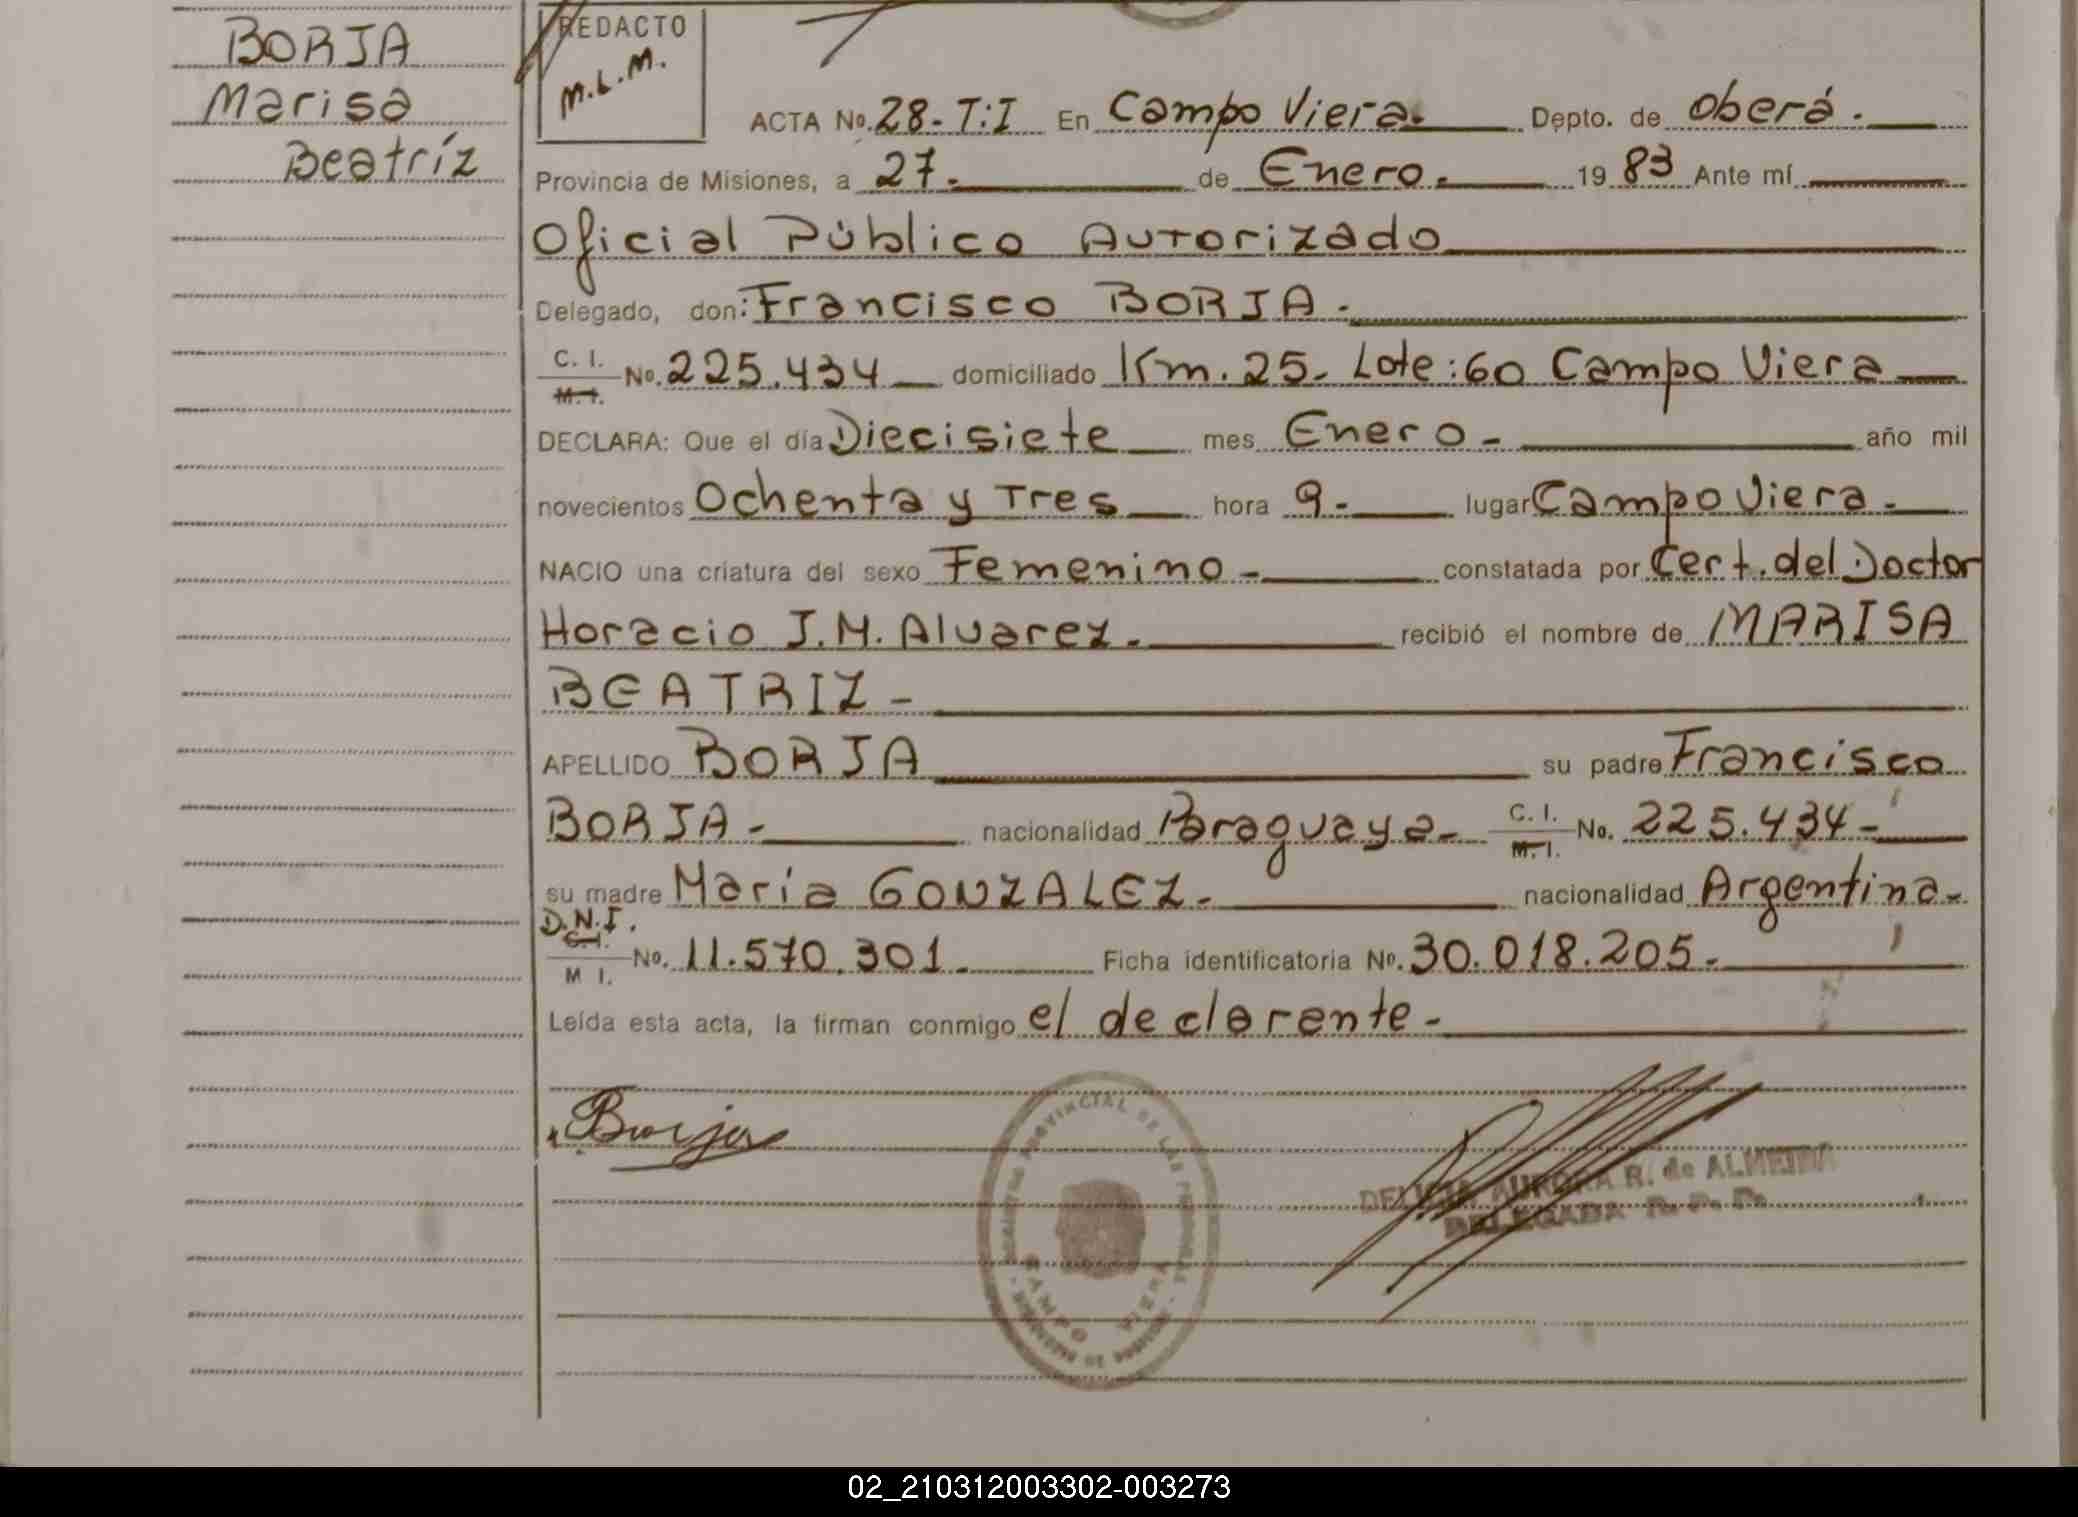 BORJA
Marisa
Beatríz
REDACTO
M.L.M.
ACTA No. 28- T:I En Campo Viera. Depto. de Oberá.
Provincia de Misiones, a 27- de Enero. 19 83 Ante mí
Oficial Público Autorizado
Delegado, don: Francisco BORJA.
C. I.
M. I. No. 225.434 domiciliado Km. 25- Lote:60 Campo Viera
DECLARA: Que el día Diecisiete mes Enero- año mil
novecientos Ochenta y Tres hora 9- lugar Campo Viera-
NACIO una criatura del sexo Femenino- constatada por Cert. del Doctor
Horacio J.M. Alvarez- recibió el nombre de MARISA
BEATRIZ-
APELLIDO BORJA su padre Francisco
BORJA- nacionalidad Paraguaya- C. I. No. 225.434-
M. I.
su madre María GONZALEZ- nacionalidad Argentina-
D.N.I.
C. I.
M I. No. 11.570.301- Ficha identificatoria No. 30.018.205-
Leída esta acta, la firman conmigo el declarente-
Borja
PROVINCIAL DE LAS PERSONAS
CAMPO VIERA
DELICIA AURORA R. de ALMEIDA
DELEGADA R. P. P.
02_210312003302-003273